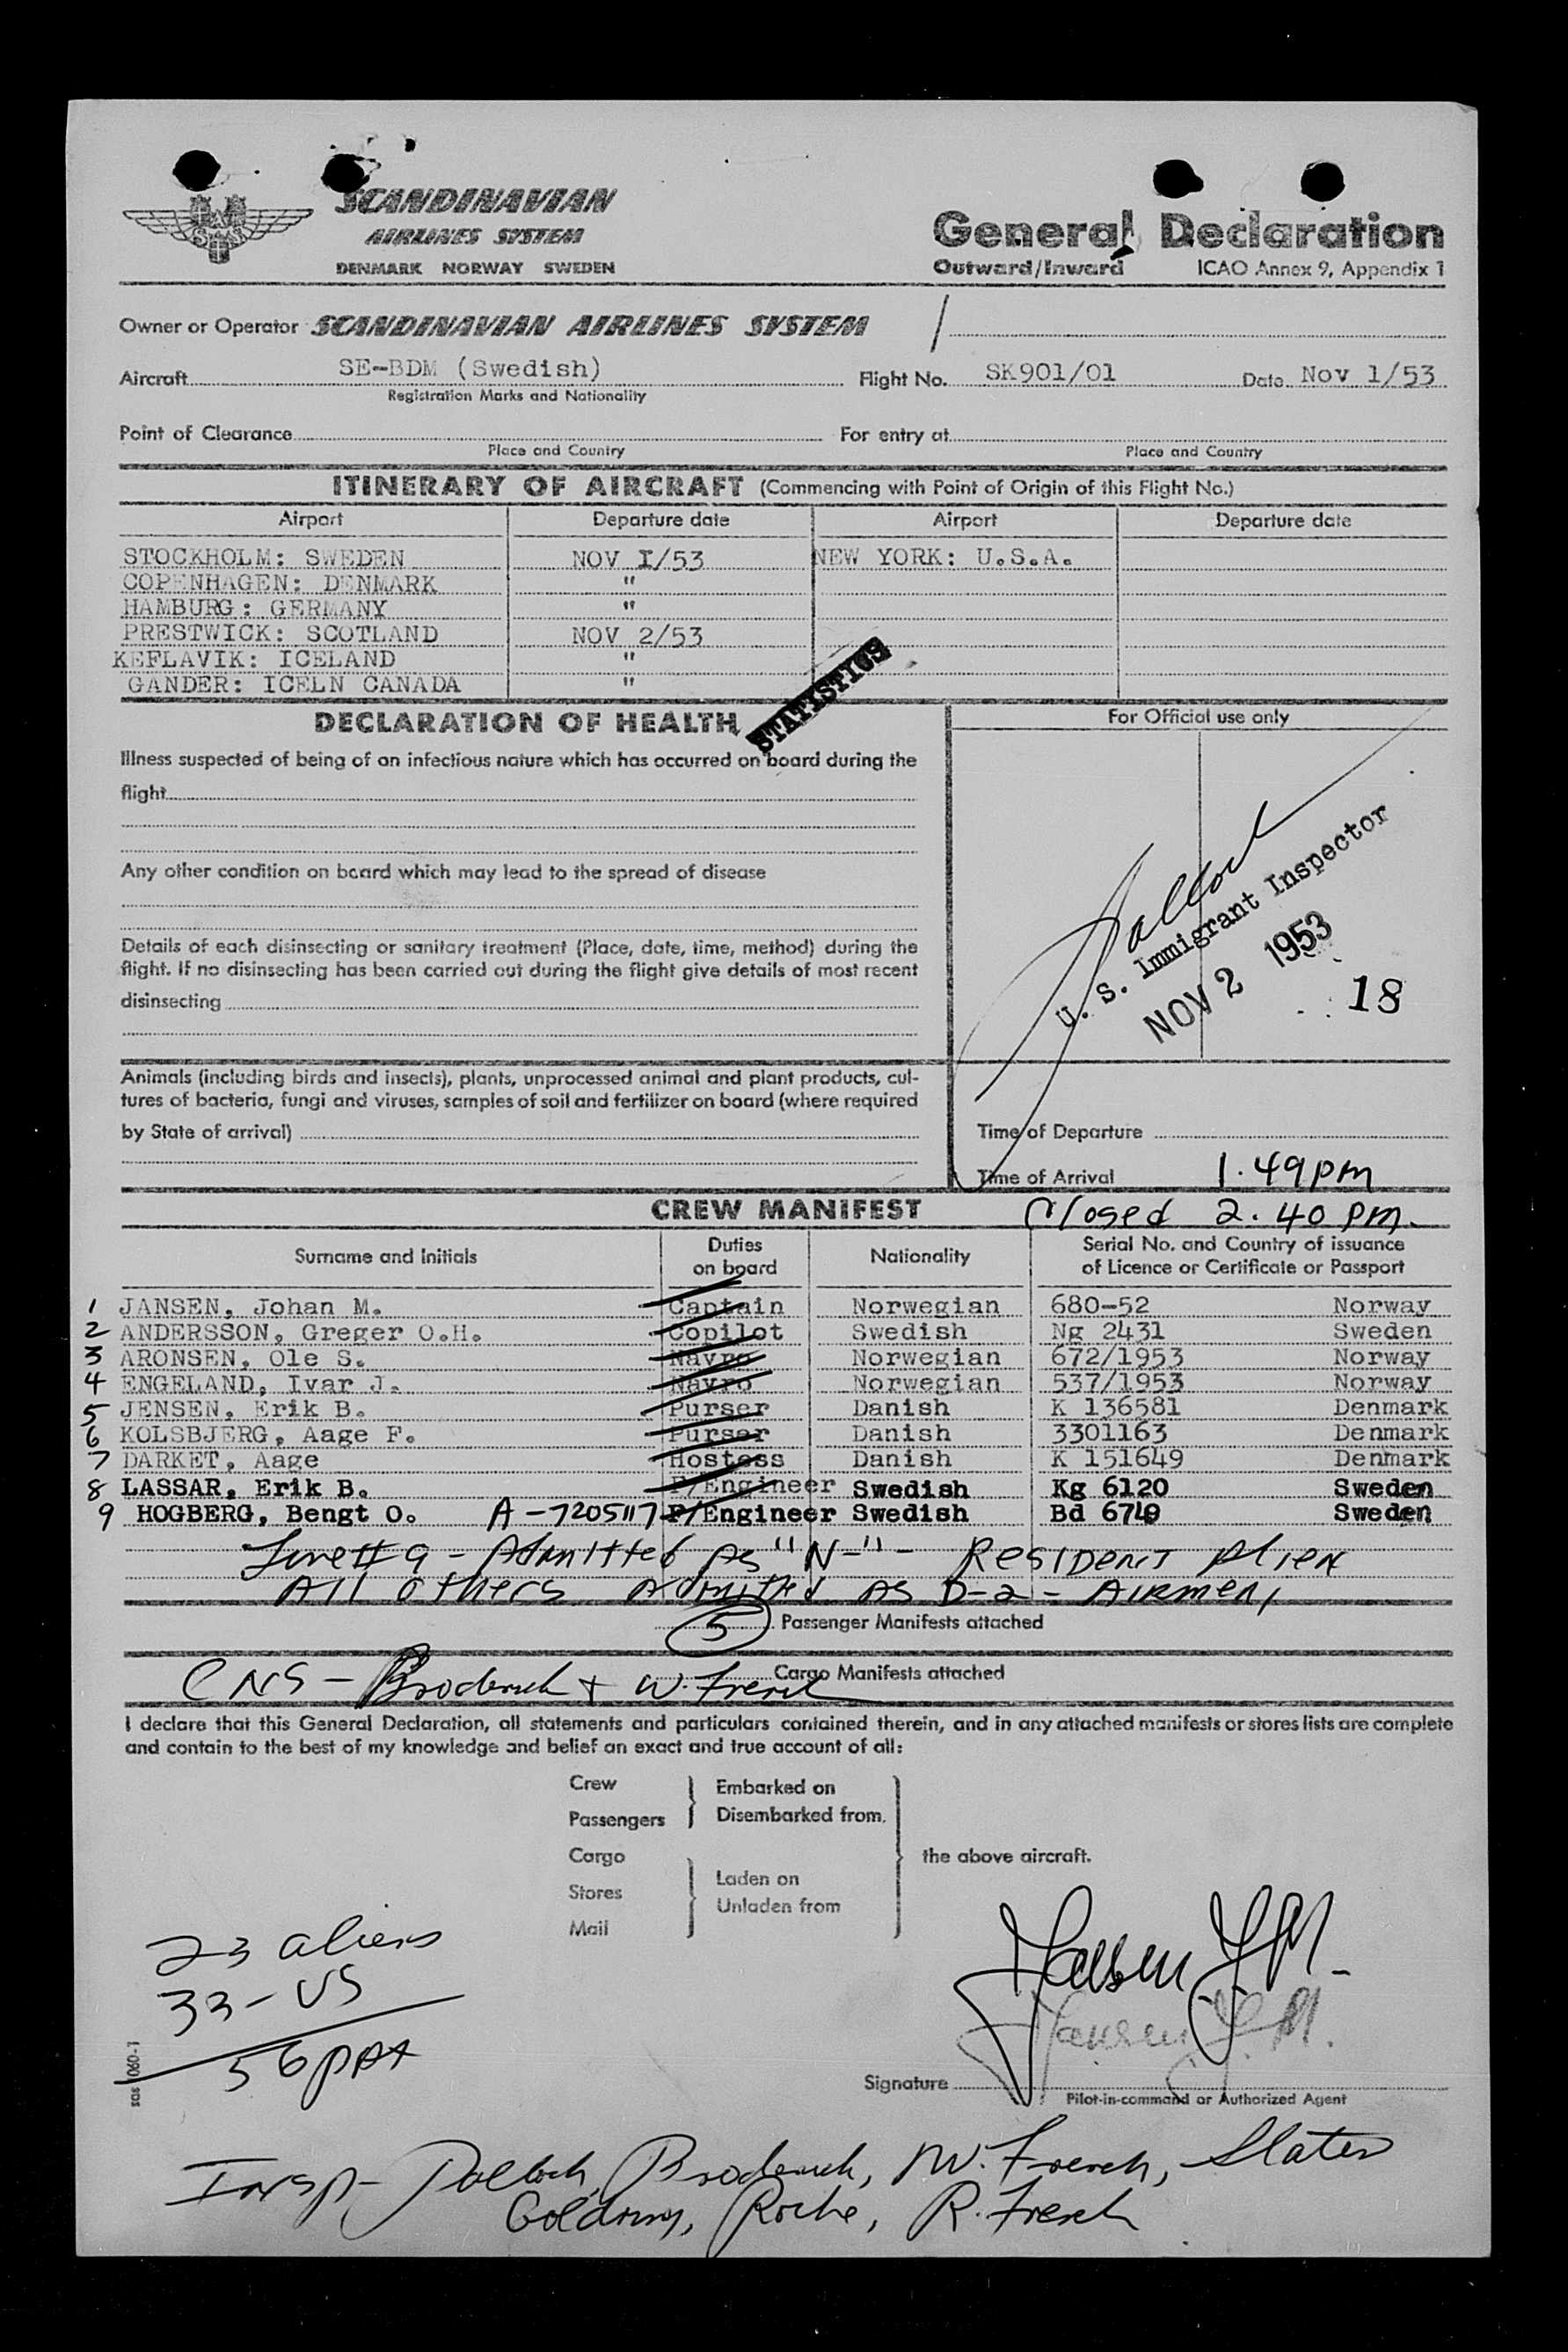 SCANDINAVIAN
AIRLINES SYSTEM
DENMARK NORWAY SWEDEN
General Declaration
Outward/Inward ICAO Annex 9, Appendix 1
Owner or Operator SCANDINAVIAN AIRLINES SYSTEM
Aircraft SE-BDM (Swedish) Flight No. SK901/01 Date Nov 1/53
Registration Marks and Nationality
Point of Clearance For entry at
Place and Country Place and Country
ITINERARY OF AIRCRAFT (Commencing with Point of Origin of this Flight No.)
Airport Departure date Airport Departure date
STOCKHOLM: SWEDEN NOV I/53 NEW YORK: U.S.A.
COPENHAGEN: DENMARK "
HAMBURG: GERMANY "
PRESTWICK: SCOTLAND NOV 2/53
KEFLAVIK: ICELAND "
GANDER: ICELN CANADA "
STATISTICS
DECLARATION OF HEALTH
For Official use only
Illness suspected of being of an infectious nature which has occurred on board during the
flight
Any other condition on board which may lead to the spread of disease
Details of each disinsecting or sanitary treatment (Place, date, time, method) during the
flight. If no disinsecting has been carried out during the flight give details of most recent
disinsecting
Pollock
U. S. Immigrant Inspector
NOV 2 1953
18
Animals (including birds and insects), plants, unprocessed animal and plant products, cul-
tures of bacteria, fungi and viruses, samples of soil and fertilizer on board (where required
by State of arrival)
Time of Departure
Time of Arrival 1.49pm
CREW MANIFEST Closed 2.40 pm.
Surname and Initials Duties on board Nationality Serial No. and Country of issuance of Licence or Certificate or Passport
1 JANSEN, Johan M. Captain Norwegian 680-52 Norway
2 ANDERSSON, Greger O.H. Copilot Swedish Ng 2431 Sweden
3 ARONSEN, Ole S. Navro Norwegian 672/1953 Norway
4 ENGELAND, Ivar J. Navro Norwegian 537/1953 Norway
5 JENSEN, Erik B. Purser Danish K 136581 Denmark
6 KOLSBJERG, Aage F. Purser Danish 3301163 Denmark
7 DARKET, Aage Hostess Danish K 151649 Denmark
8 LASSAR, Erik B. F/Engineer Swedish Kg 6120 Sweden
9 HOGBERG, Bengt O. A-7205117 F/Engineer Swedish Bd 6740 Sweden
Line #9 - Admitted As "N-" - Resident Alien
All others Admitted AS D-2 - Airmen
5 Passenger Manifests attached
CNS - Broderick + W. French Cargo Manifests attached
I declare that this General Declaration, all statements and particulars contained therein, and in any attached manifests or stores lists are complete
and contain to the best of my knowledge and belief an exact and true account of all:
Crew
Passengers
Embarked on
Disembarked from
Cargo
Stores
Mail
Laden on
Unladen from
the above aircraft.
23 aliens
33 - US
56 pax
sas 1-090
Jansen J.M.
Jansen J.M.
Signature
Pilot-in-command or Authorized Agent
Insp - Pollock, Broderick, W. French, Slater
Goldring, Roche, R. French